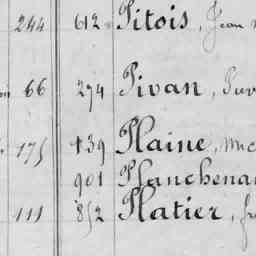 244 612 Pitois, Jean
66 274 Pivan,
175 439 Plaine,
901 Planchenau
111 852 Platier,